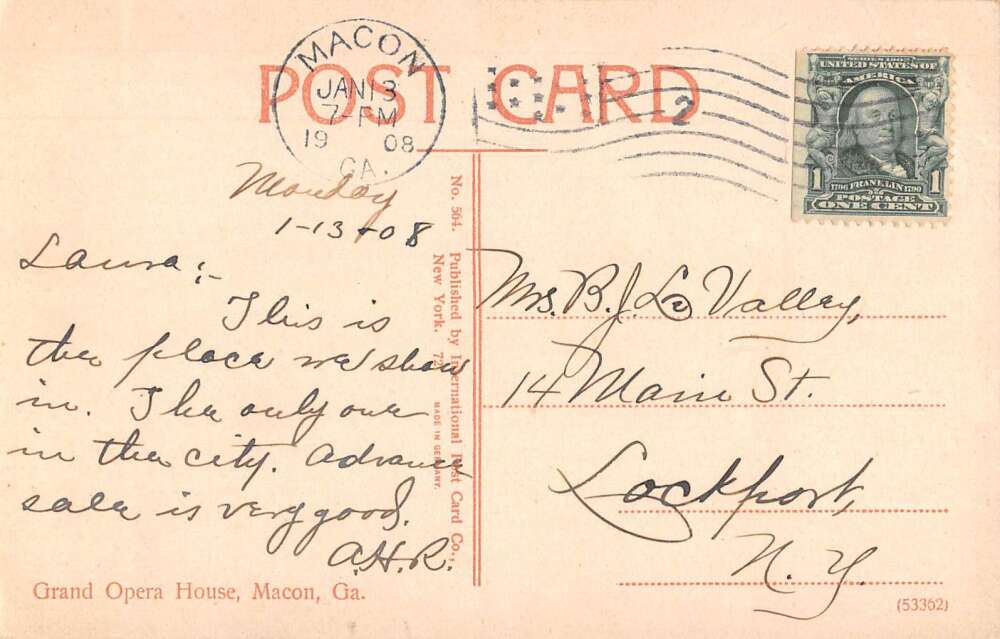 POST CARD
MACON
JAN 13
7-PM
1908
GA.
2
SERIES 1902
UNITED STATES OF
AMERICA
1706 FRANKLIN 1790
1 1
POSTAGE
ONE CENT
Monday
1-13-08
Laura:-
This is
the place we show
in. The only one
in the city. Advance
sale is very good.
A.H.R.
Grand Opera House, Macon, Ga.
No. 504. Published by International Post Card Co.,
New York. 72 MADE IN GERMANY.
Mrs. B. J. La Valley,
14 Main St.
Lockport,
N. Y.
(53362)